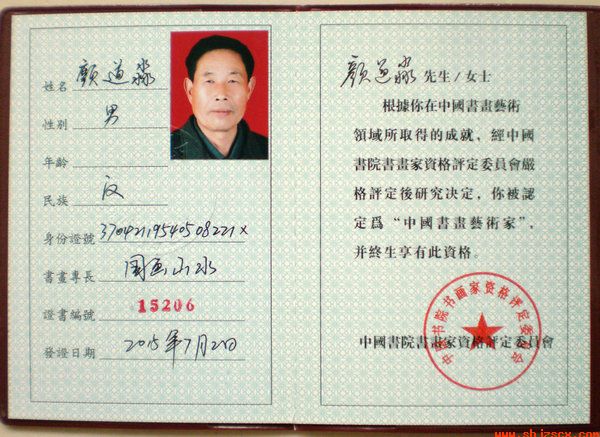 姓名 顏道淼
性别 男
年齡
民族 汉
身份證號 37042119540508221X
書畫專長 国画山水
證書編號 15206
發證日期 2015年7月
顏道淼 先生/女士
根據你在中國書畫藝術
領域所取得的成就，經中國
書院書畫家資格評定委員會嚴
格評定後研究決定，你被認
定爲“中國書畫藝術家”，
并終生享有此資格。
中国书院书画家资格评定委员会
中國書院書畫家資格評定委員會
www.shjzscx.com